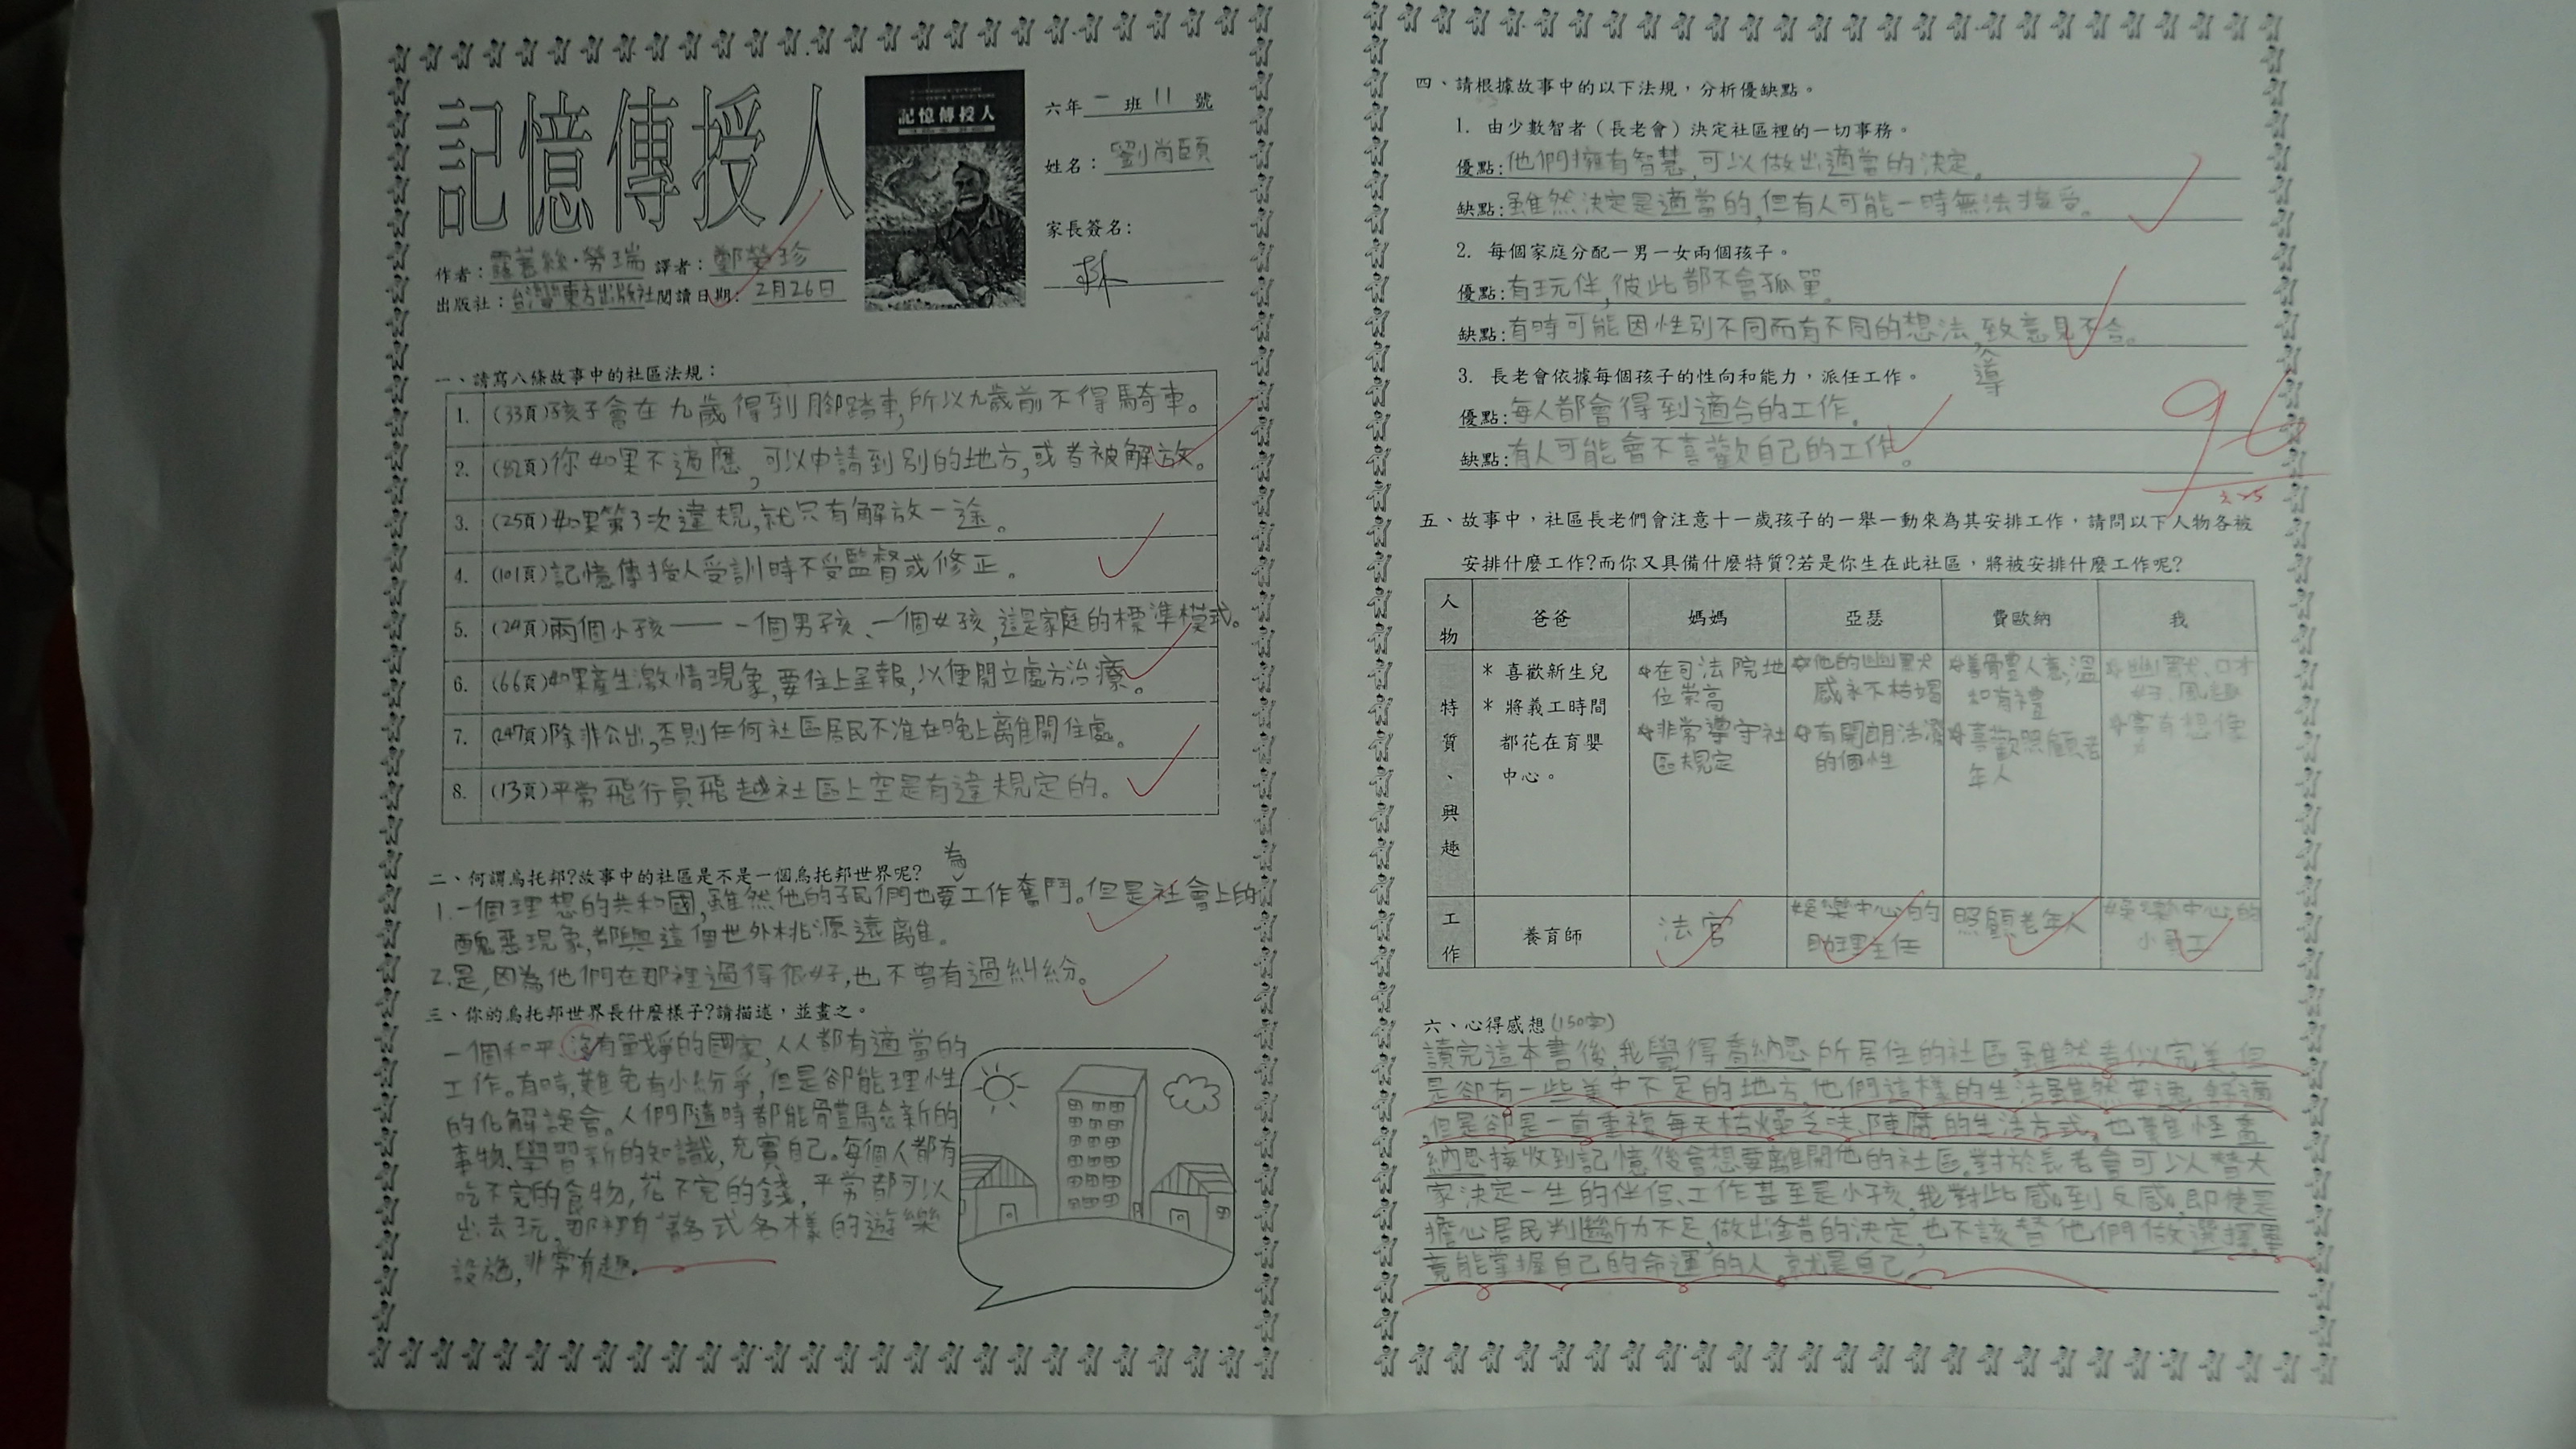 記憶傳授人
記憶傳授人
六年一班11號
姓名：劉尚頤
家長簽名：
林
作者：露薏絲·勞瑞 譯者：鄭榮珍
出版社：台灣東方出版社 閱讀日期：2月26日
一、請寫八條故事中的社區法規：
1. (33頁)孩子會在九歲得到腳踏車,所以九歲前不得騎車。
2. (62頁)你如果不適應,可以申請到別的地方,或者被解放。
3. (25頁)如果第3次違規,就只有解放一途。
4. (101頁)記憶傳授人受訓時不受監督或修正。
5. (24頁)兩個小孩——一個男孩、一個女孩,這是家庭的標準模式。
6. (66頁)如果產生激情現象,要往上呈報,以便開立處方治療。
7. (247頁)除非公出,否則任何社區居民不准在晚上離開住處。
8. (13頁)平常飛行員飛越社區上空是有違規定的。
二、何謂烏托邦?故事中的社區是不是一個烏托邦世界呢?
為
1.一個理想的共和國,雖然他的子民們也要工作奮鬥。但是社會上的
醜惡現象,都與這個世外桃源遠離。
2.是,因為他們在那裡過得很好,也不曾有過糾紛。
三、你的烏托邦世界長什麼樣子?請描述，並畫之。
一個和平、沒有戰爭的國家,人人都有適當的
工作。有時,難免有小紛爭,但是卻能理性
的化解誤會。人們隨時都能體驗新的
事物、學習新的知識,充實自己。每個人都有
吃不完的食物,花不完的錢,平常都可以
出去玩,那裡有各式各樣的遊樂
設施,非常有趣。
四、請根據故事中的以下法規，分析優缺點。
1. 由少數智者（長老會）決定社區裡的一切事務。
優點:他們擁有智慧,可以做出適當的決定。
缺點:雖然決定是適當的,但有人可能一時無法接受。
2. 每個家庭分配一男一女兩個孩子。
優點:有玩伴,彼此都不會孤單。
缺點:有時可能因性別不同而有不同的想法,致意見不合。
導
3. 長老會依據每個孩子的性向和能力，派任工作。
優點:每人都會得到適合的工作。
缺點:有人可能會不喜歡自己的工作。
96
五、故事中，社區長老們會注意十一歲孩子的一舉一動來為其安排工作，請問以下人物各被
安排什麼工作?而你又具備什麼特質?若是你生在此社區，將被安排什麼工作呢?
人物 爸爸 媽媽 亞瑟 費歐納 我
特質、興趣
* 喜歡新生兒
* 將義工時間
都花在育嬰
中心。
*在司法院地
位崇高
*非常遵守社
區規定
*他的幽默
感永不枯竭
*有開朗活潑
的個性
*善體人意,溫
和有禮
*喜歡照顧老
年人
*幽默、口才
好、風趣
*富有想像
力
工作 養育師
法官
娛樂中心的
助理主任
照顧老年人
娛樂中心的
小員工
六、心得感想(150字)
讀完這本書後,我覺得喬納思所居住的社區,雖然看似完美,但
是卻有一些美中不足的地方,他們這樣的生活雖然安逸、舒適
,但是卻是一直重複每天枯燥乏味、陳腐的生活方式,也難怪喬
納思接收到記憶後會想要離開他的社區。對於長老會可以替大
家決定一生的伴侶、工作甚至是小孩,我對此感到反感,即使是
擔心居民判斷力不足,做出錯的決定,也不該替他們做選擇,畢
竟能掌握自己的命運的人,就是自己。